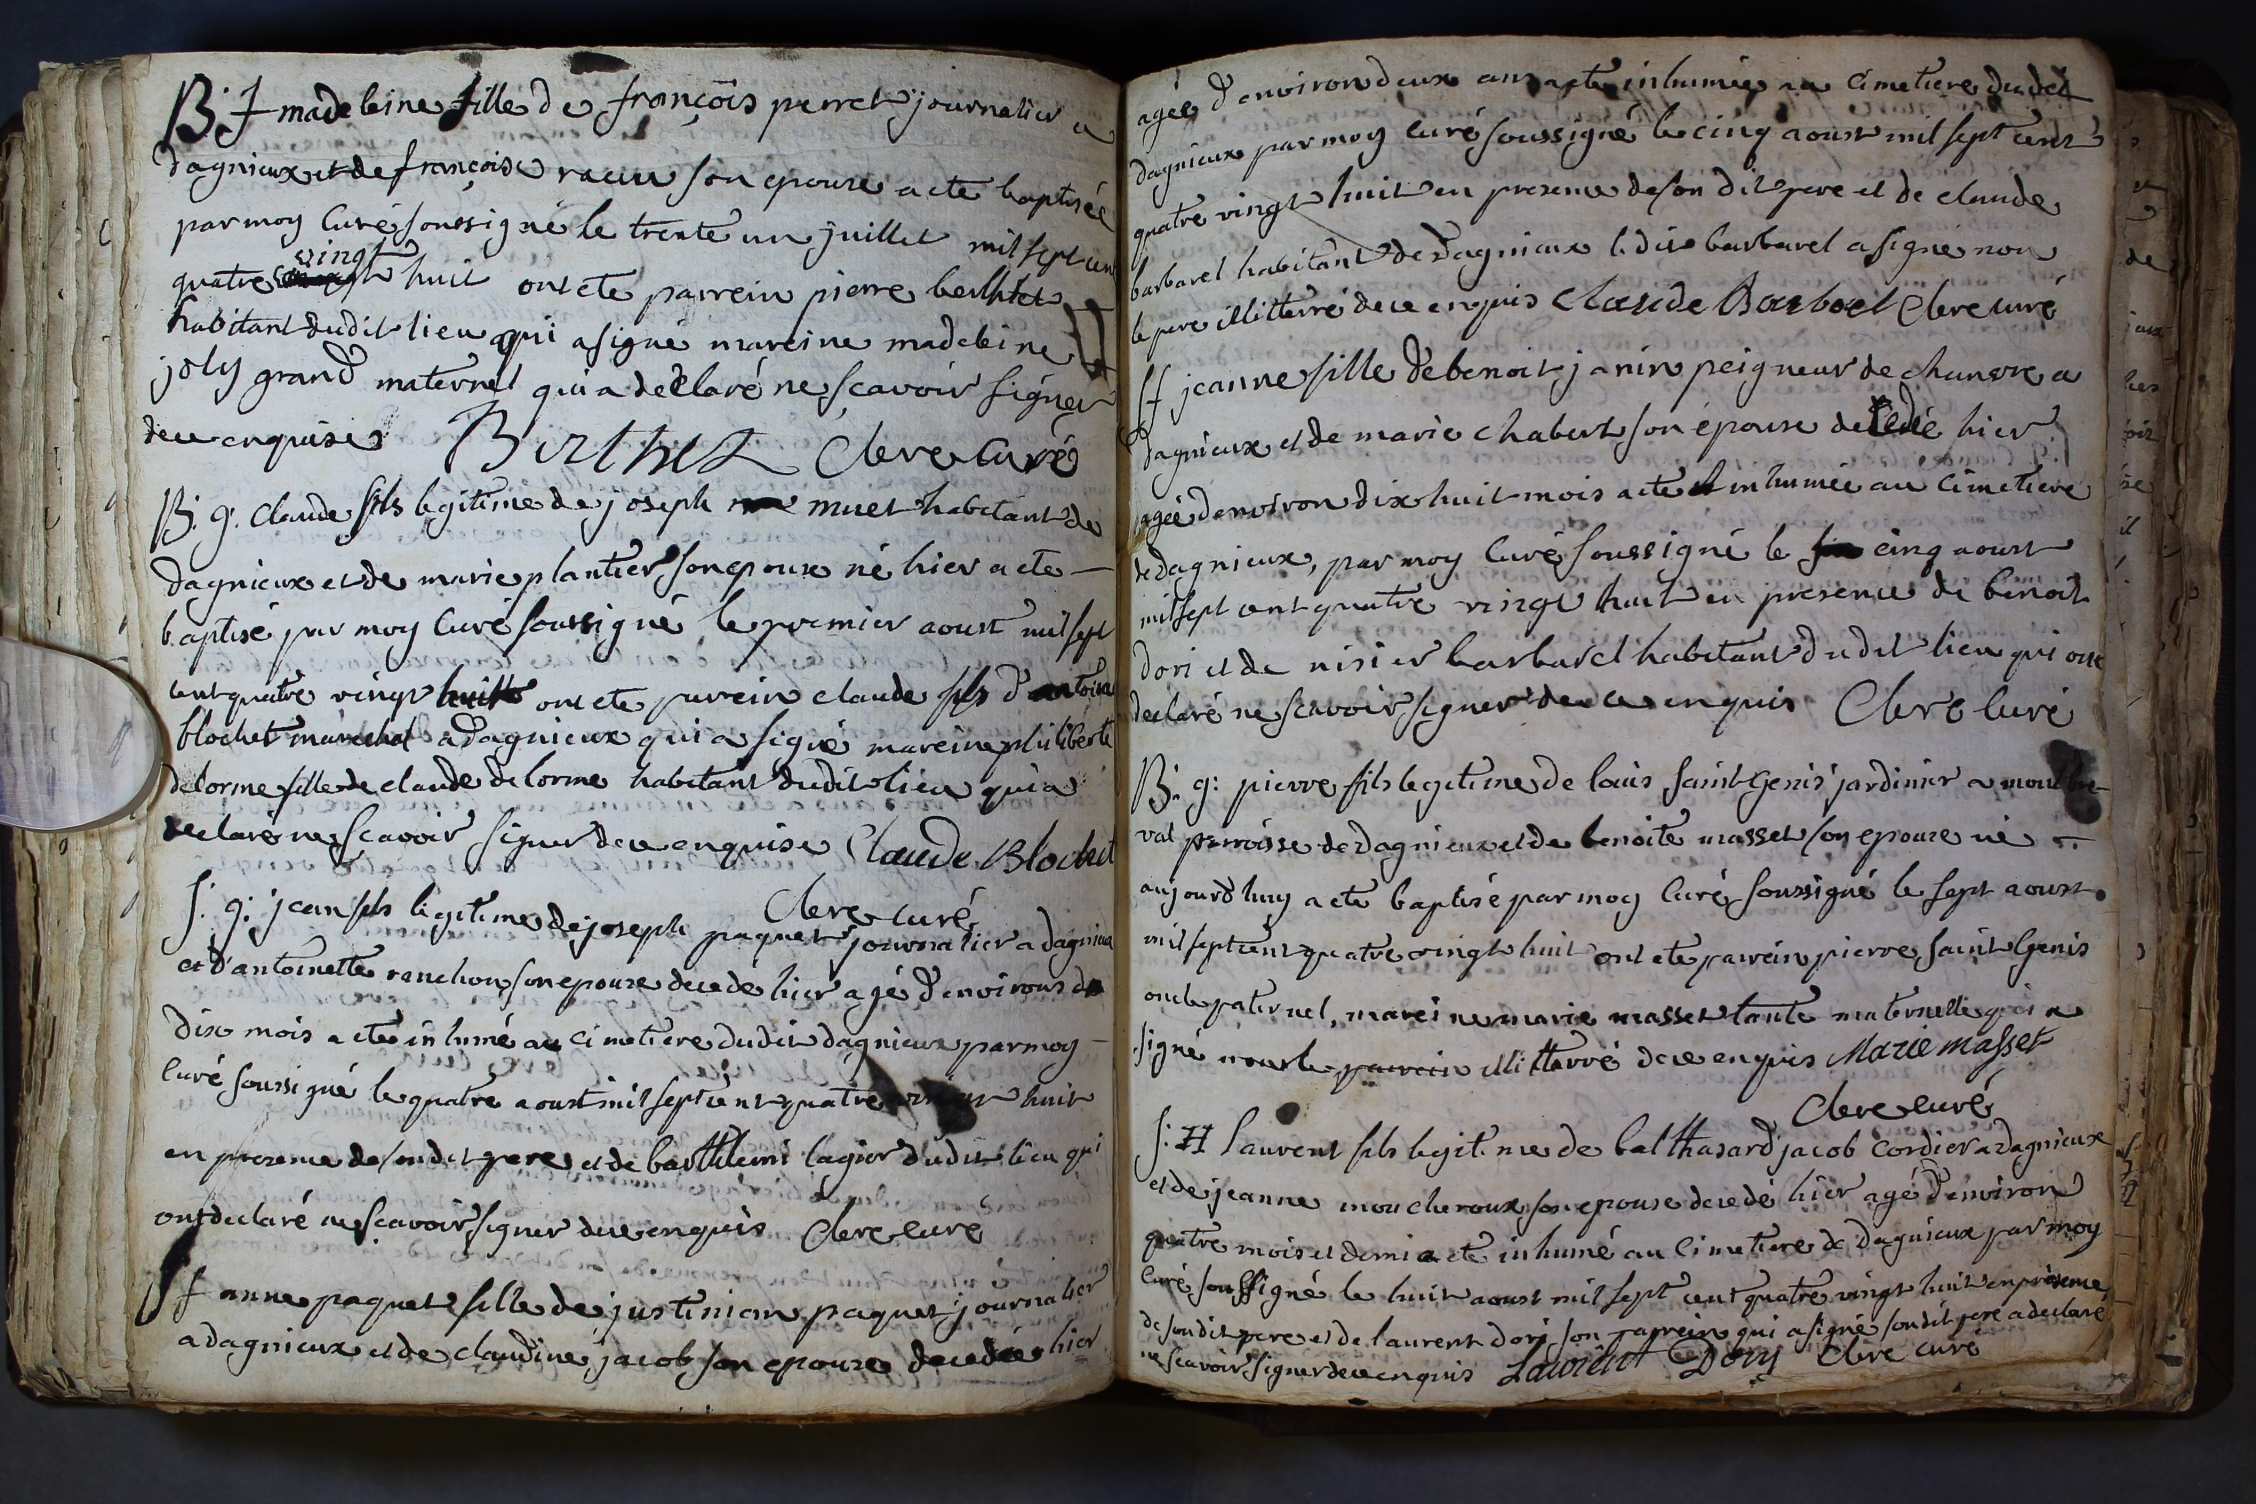 B. f madeleine fille de françois perret journalier a
dagnieux et de françoise racu son epouse a ete baptisée
par moy Curé soussigné le trente un juillet mil sept cent
quatre vingt huit ont ete parrein pierre berthet
habitant dudit lieu qui a signé mareine madeleine
joly grand maternel qui a declaré ne scavoir signer
de ce enquise Berthet Clere Curé
B. g. Claude fils legitime de joseph muet habitant de
dagnieux et de marie plantier son epouse né hier a ete
baptisé par moy Curé soussigné le premier aoust mil sept
cent quatre vingt huit ont ete parein claude fils d'antoine
blochet maréchal a dagnieux qui a signé mareine philiberte
delorme fille de claude delorme habitant dudit lieu qui a
declaré ne scavoir signer de ce enquise Claude Blochet
Clere curé
S. g. jean fils legitime de joseph paquet journalier a dagnieux
et d'antoinette ranchon son epouse decedé hier agé d'environs de
dix mois a ete inhumé au cimetiere dudit dagnieux par moy
Curé soussigné le quatre aoust mil sept cent quatre vingt huit
en presence de son dit pere et de barthelemi lagier dudit lieu qui
ont declaré ne scavoir signer de ce enquis Clere curé
S f anne paquet fille de justinien paquet journalier
a dagnieux et de claudine jacob son epouse decedée hier
agée d'environ deux ans a ete inhumée au cimetiere dudet
dagnieux par moy curé soussigné le cinq aoust mil sept cent
quatre vingt huit en presence de son dit pere et de claude
barbarel habitant de dagnieux le dit barbarel a signé non
le pere illitterré de ce enquis Claude Barboel Clere curé
S f jeanne fille de benoit janin peigneur de chanvre a
dagnieux et de marie chabert son épouse decedé hier
agée d'environ dix huit mois a ete inhumée au cimetiere
de dagnieux, par moy Curé soussigné le cinq aoust
mil sept cent quatre vingt huit en presence de benoit
dori et de nisier barbarel habitant dudit lieu qui ont
declaré ne scavoir signer de ce enquis Clere Curé
B. g. pierre fils legitime de louis saint Genis jardinier a montbre-
val parroisse de dagnieux et de benoite masset son epouse né
aujourd'huy a ete baptisé par moy Curé soussigné le sept aoust
mil sept cent quatre vingt huit ont ete parrein pierre saint Genis
oncle paternel, mareine marie masset tante maternelle qui a
signé non le parrein illitterré de ce enquis Marie masset
Clere curé
S. H Laurent fils legitime de balthasard jacob cordier a dagnieux
et de jeanne moucheroux son epouse decedé hier agé d'environ
quatre mois et demi a ete inhumé au cimetiere de dagnieux par moy
Curé soussigné le huit aoust mil sept cent quatre vingt huit en presence
de son dit pere et de laurent dori son parrein qui a signé son dit pere a declaré
ne scavoir signer de ce enquis Laurent Dory Clere curé